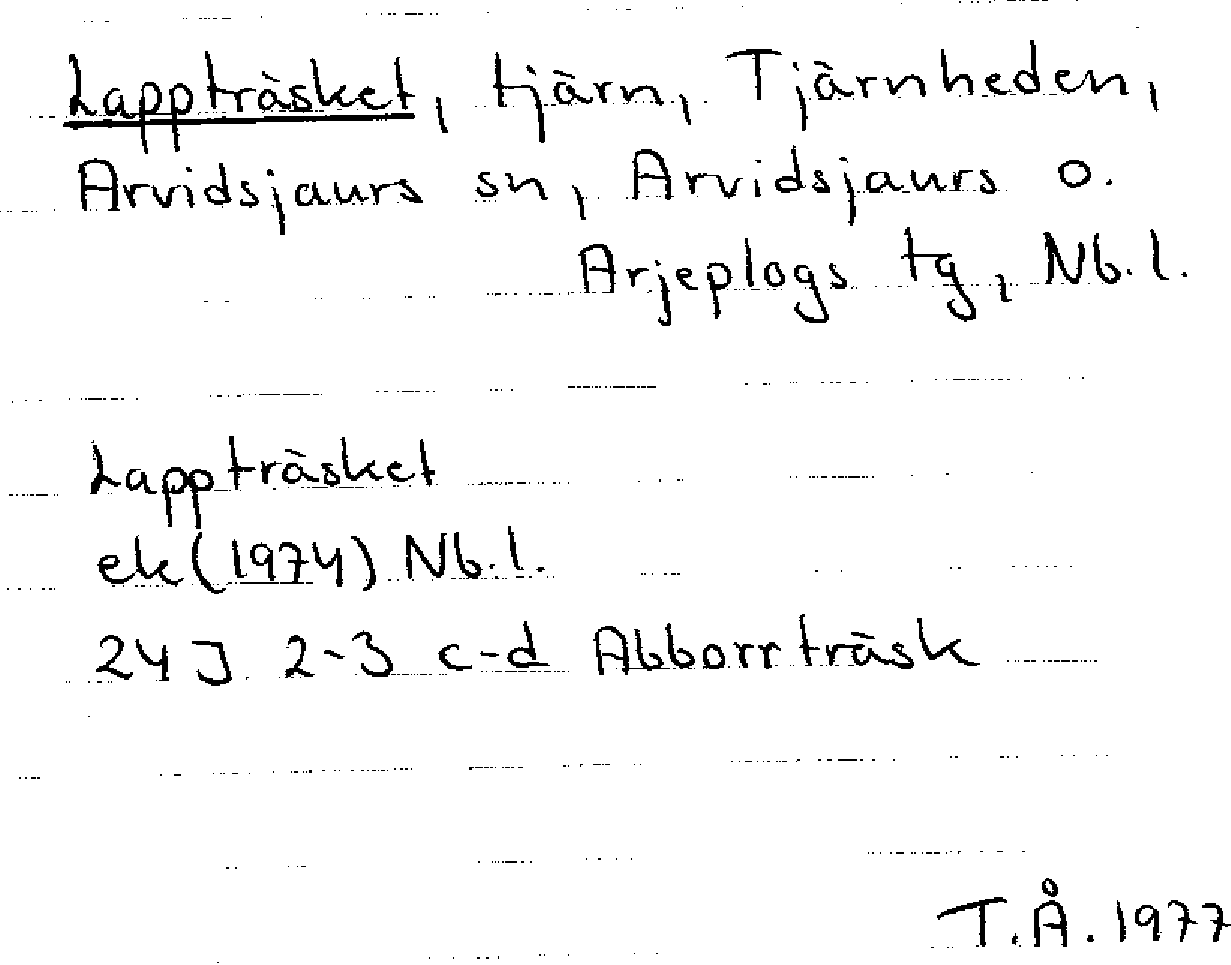 Lappträsket, tjärn, Tjärnheden,
Arvidsjaurs sn, Arvidsjaurs o.
Arjeplogs tg, Nb.l.
Lappträsket
ek (1974) Nb.l.
24J 2-3 c-d Abborrträsk
T.Å. 1977